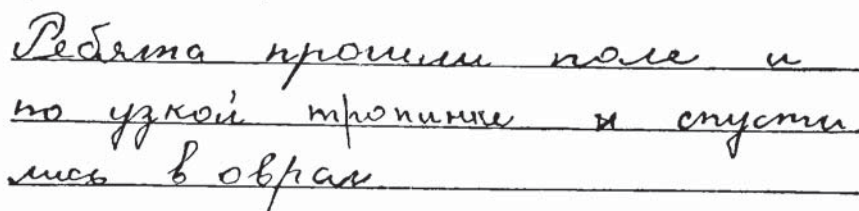 Ребята прошли поле и
по узкой тропинке и спусти
лись в оврак